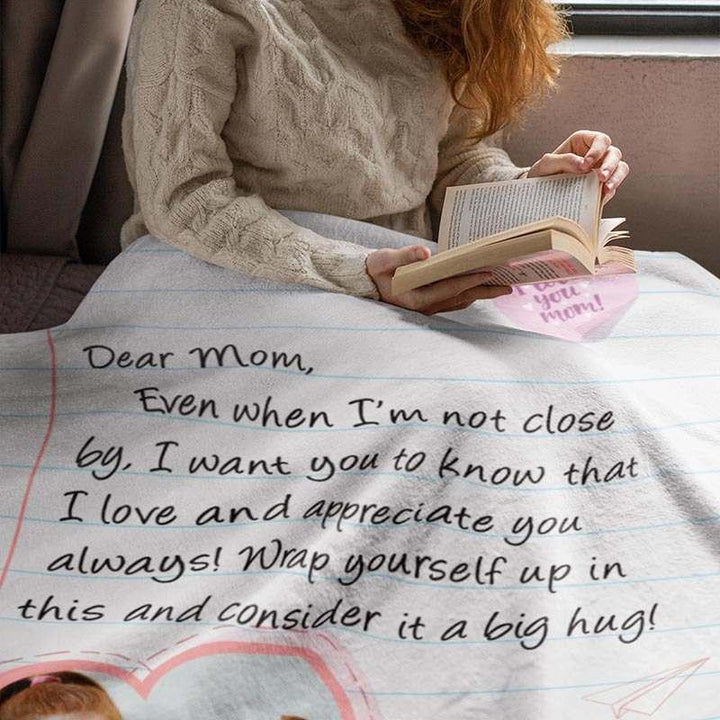 I love
you
mom!
Dear Mom,
Even when I'm not close
by, I want you to know that
I love and appreciate you
always! Wrap yourself up in
this and consider it a big hug!